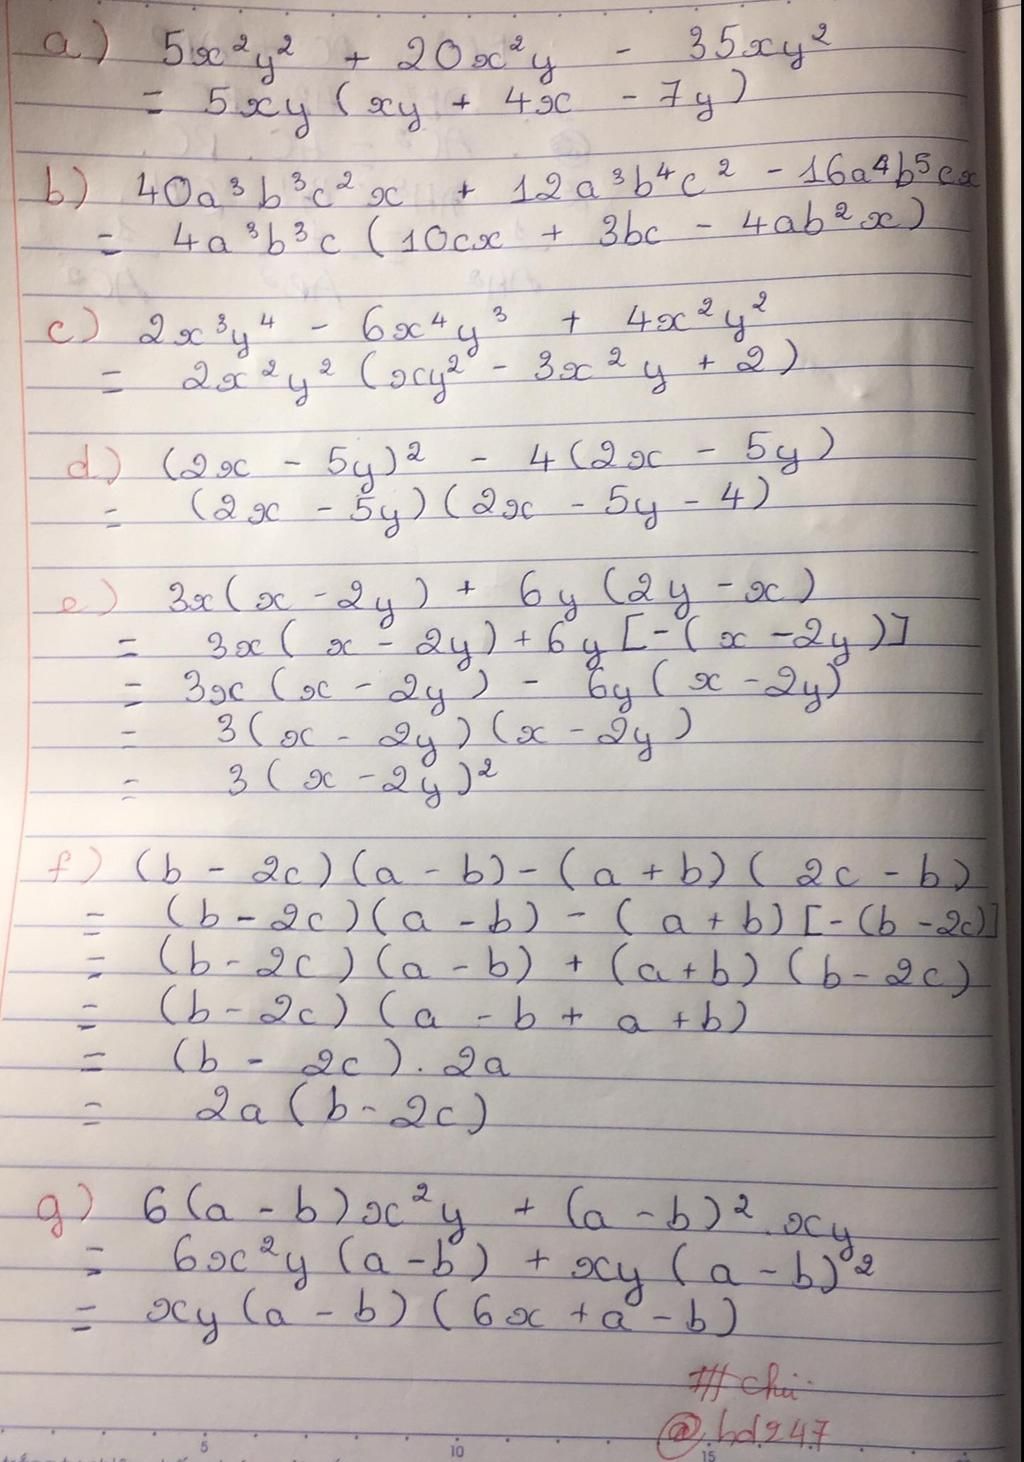 a) 5x²y² + 20x²y - 35xy²
= 5xy (xy + 4x - 7y)
b) 40a³b³c²x + 12a³b⁴c² - 16a⁴b⁵cx
= 4a³b³c (10cx + 3bc - 4ab²x)
c) 2x³y⁴ - 6x⁴y³ + 4x²y²
= 2x²y² (xy² - 3x²y + 2)
d) (2x - 5y)² - 4(2x - 5y)
= (2x - 5y)(2x - 5y - 4)
e) 3x(x - 2y) + 6y(2y - x)
= 3x(x - 2y) + 6y[-(x - 2y)]
= 3x(x - 2y) - 6y(x - 2y)
= 3(x - 2y)(x - 2y)
= 3(x - 2y)²
f) (b - 2c)(a - b) - (a + b)(2c - b)
= (b - 2c)(a - b) - (a + b)[-(b - 2c)]
= (b - 2c)(a - b) + (a + b)(b - 2c)
= (b - 2c)(a - b + a + b)
= (b - 2c).2a
= 2a(b - 2c)
g) 6(a - b)x²y + (a - b)².xy
= 6x²y(a - b) + xy(a - b)²
= xy(a - b)(6x + a - b)
@bd247
5 10 15